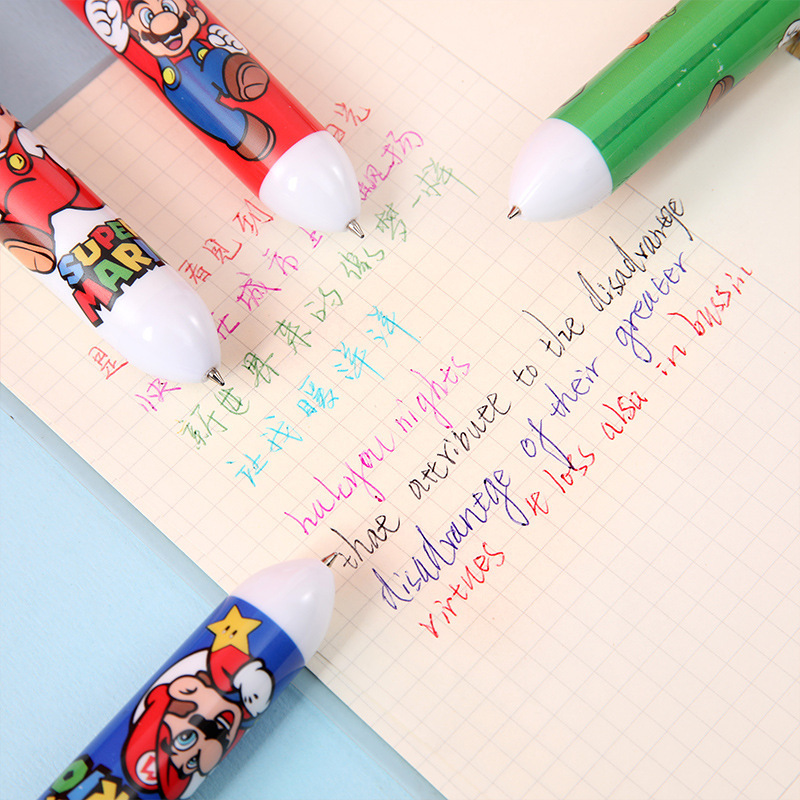 SUPER
MARI
看见到
忙城市
新世界来的像梦一样
让我暖洋洋
halcyou nights
that attribute to the disadrantge
disadrantge of their greater
virtues it loss also in bussin